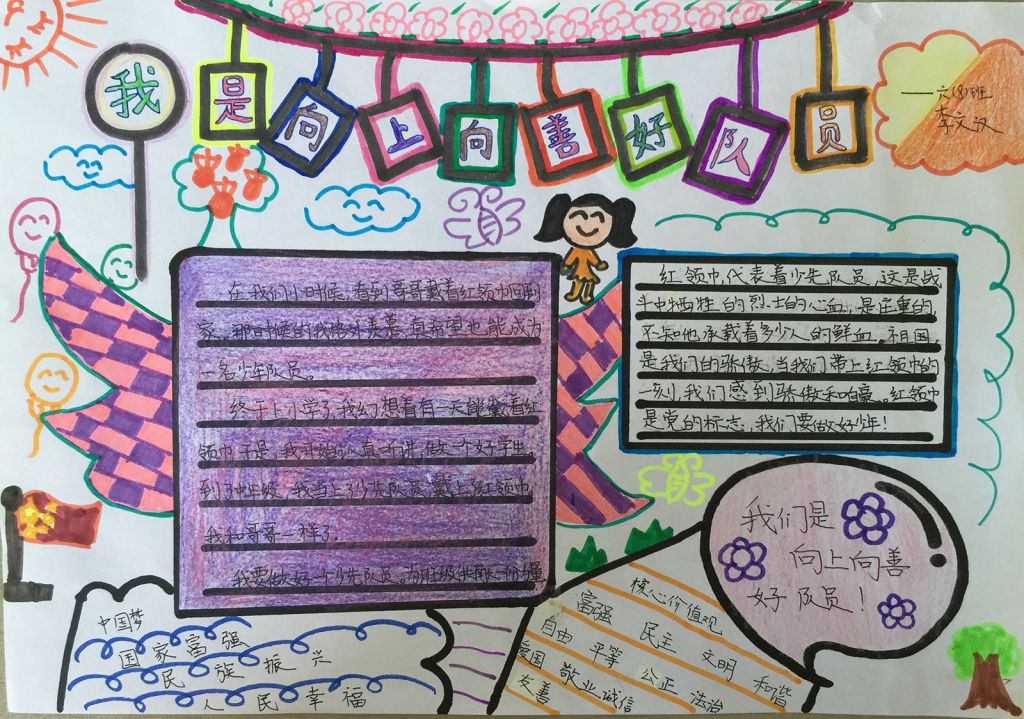 我是向上向善好队员
——六(8)班
李文汉
在我们小时候,看到哥哥戴着红领巾回到
家。那时候的我格外羡慕,真希望也能成为
一名少年队员。
终于上小学了,我幻想着有一天能戴着红
领巾于是,我开始认真听讲,做一个好学生。
到了年级,我当上了少先队员,戴上红领巾,
我和哥哥一样了。
我要做好一个少先队员。为班级供献一份力量
红领巾,代表着少先队员,这是战
斗中牺牲的烈士的心血,是庄重的,
不知他承载着多少人的鲜血。祖国,
是我们的骄傲,当我们带上红领巾的
一刻,我们感到骄傲和自豪。红领巾
是党的标志,我们要做好少年!
我们是
向上向善
好队员!
中国梦
国家富强
民族振兴
人民幸福
核心价值观
富强 民主 文明 和谐
自由 平等 公正 法治
爱国 敬业 诚信
友善